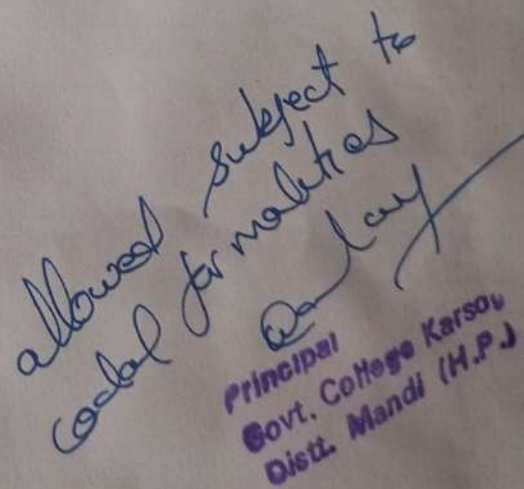 allowed subject to
codal formalities
Principal
Govt. College Karsog
Distt. Mandi (H.P.)